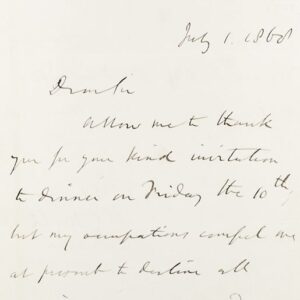 July 1. 1868
Dear Sir
Allow me to thank
you for your kind invitation
to dinner on Friday the 10th,
but my occupations compel me
at present to decline all